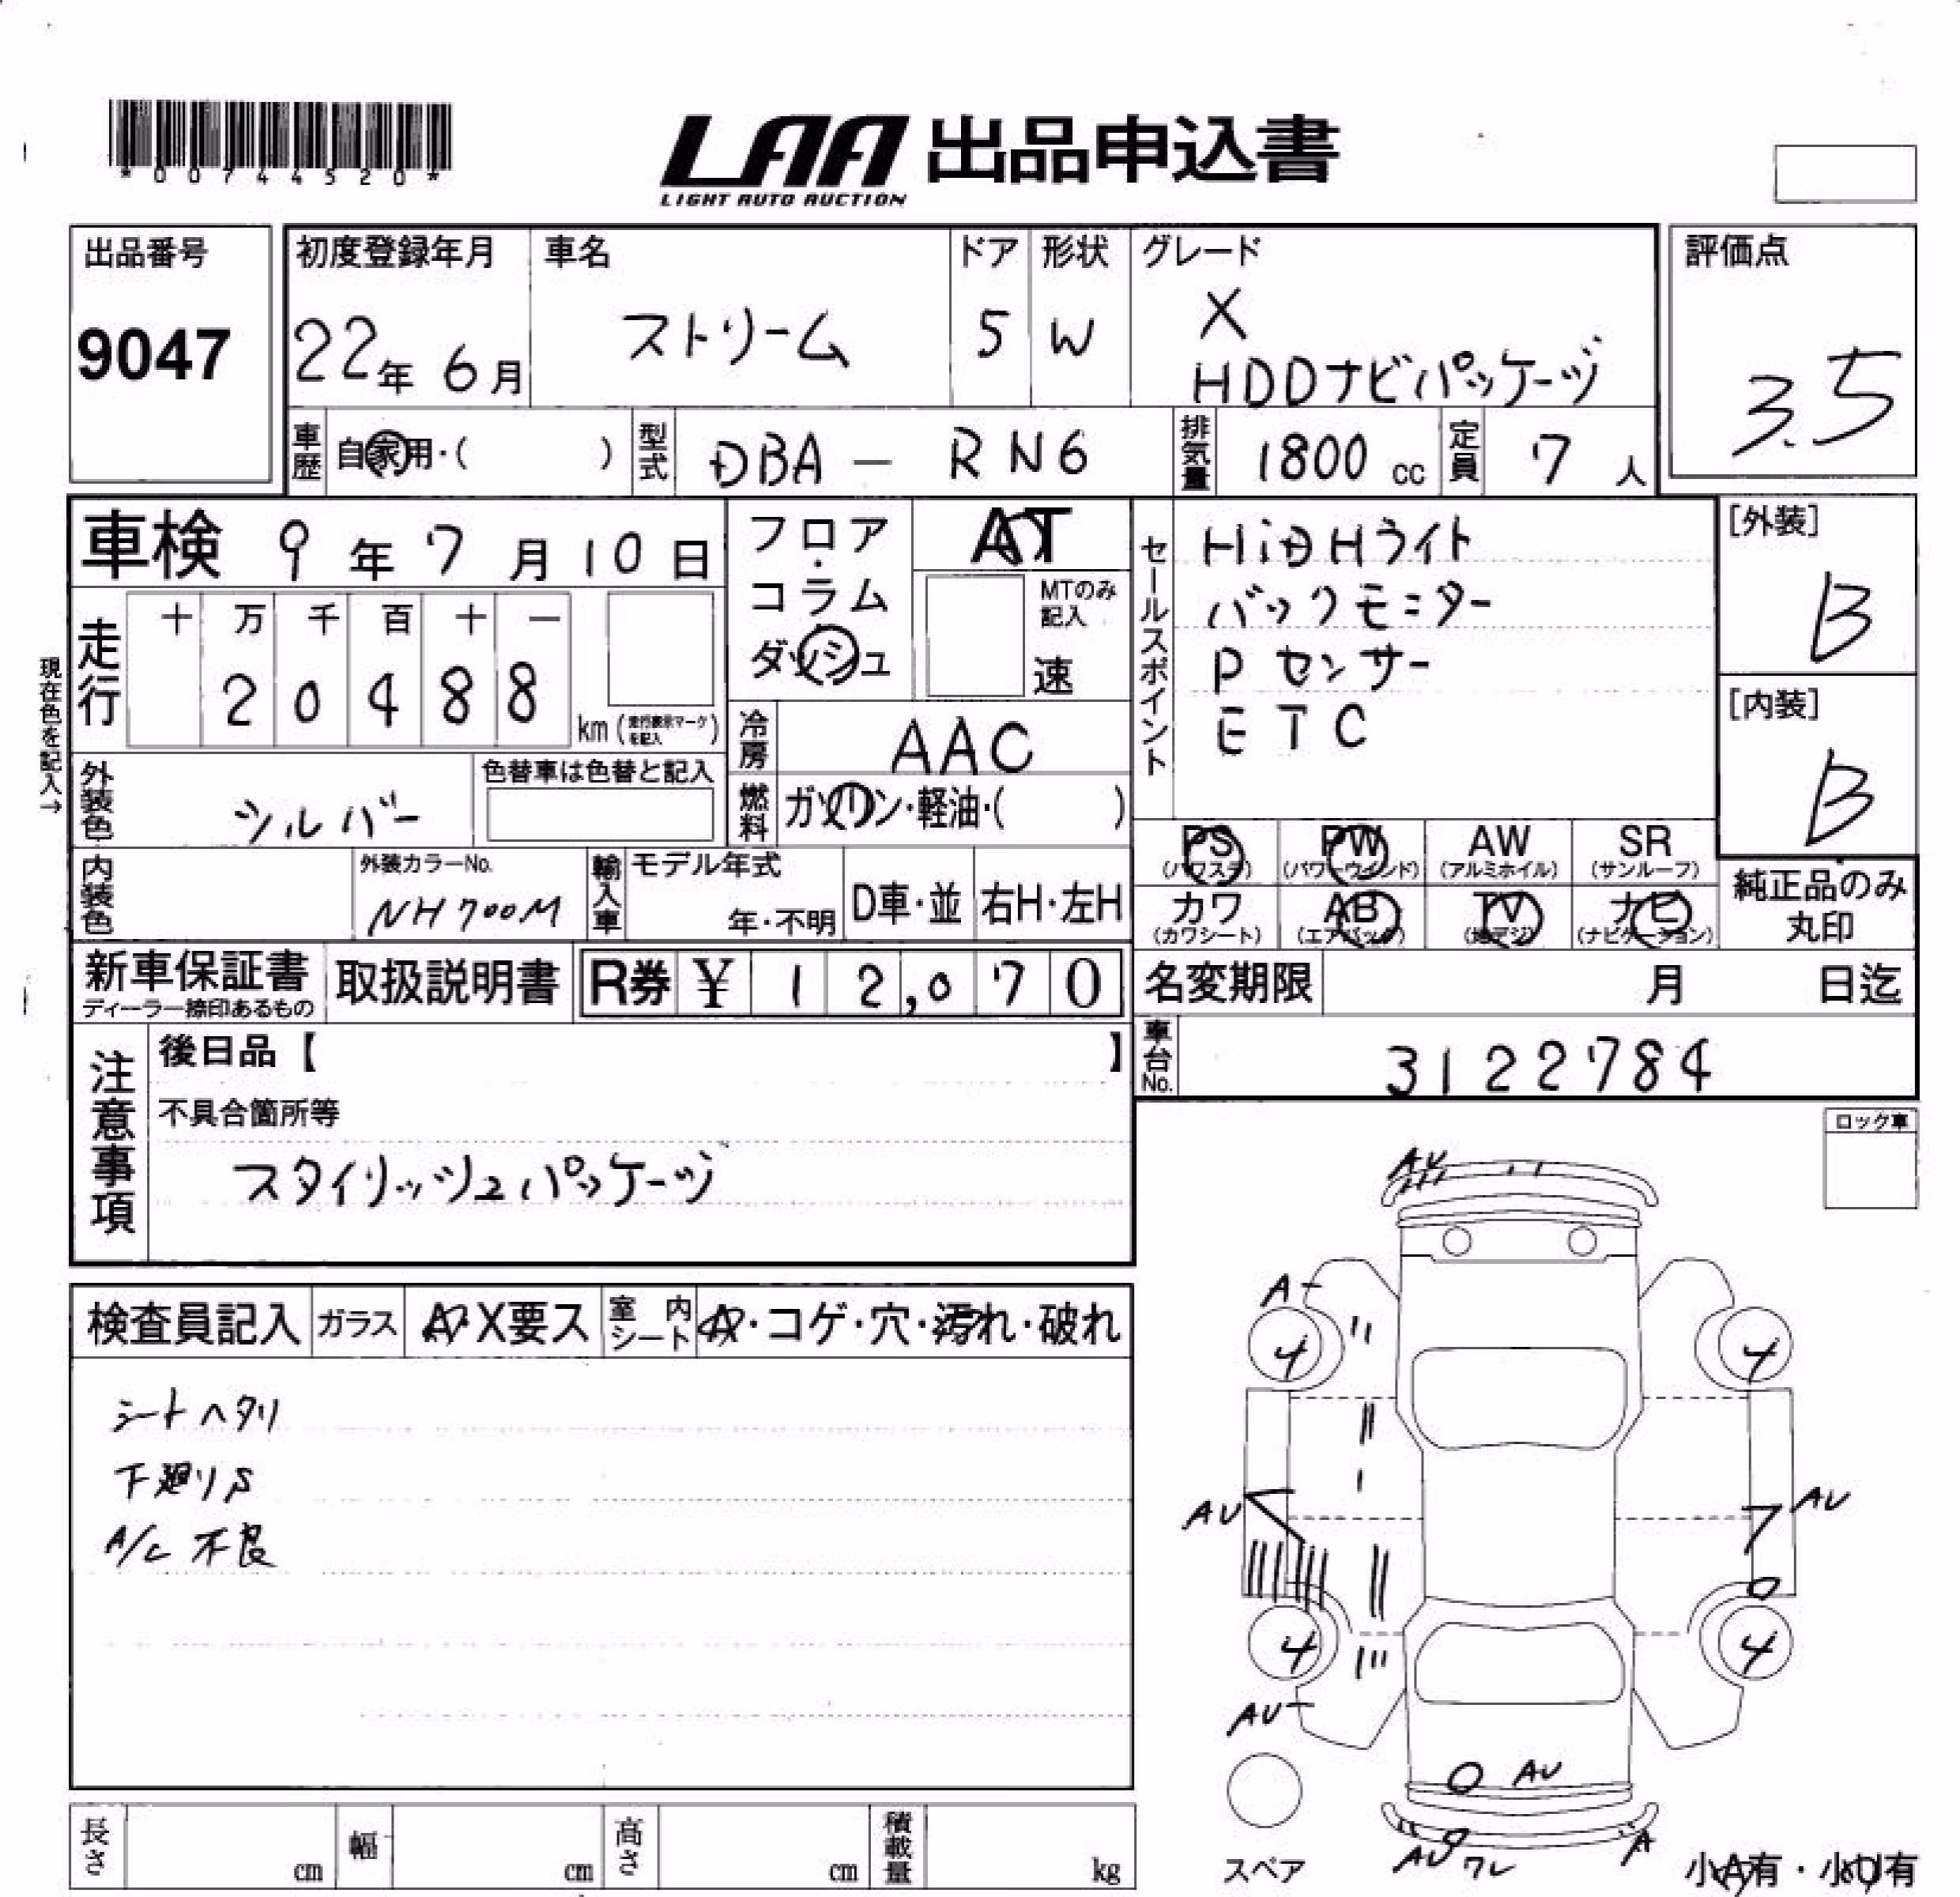 *00744520*
LAA 出品申込書
LIGHT AUTO AUCTION
出品番号
9047
初度登録年月
22年 6月
車名
ストリーム
ドア
5
形状
W
グレード
X
HDDナビパッケージ
評価点
3.5
車歴
自家用・( )
型式
DBA - RN6
排気量
1800 cc
定員
7 人
車検 9年 7月 10日
フロア・
コラム・
ダッシュ
AT
MTのみ
記入
速
セールスポイント
HiDHライト
バックモニター
Pセンサー
ETC
[外装]
B
[内装]
B
現在色を記入→
走行
十 万 千 百 十 一
2 0 4 8 8
km (走行表示マークを記入)
冷房
AAC
燃料
ガソリン・軽油・( )
外装色
シルバー
色替車は色替と記入
内装色
外装カラーNo.
NH700M
輸入車
モデル年式
年・不明
D車・並
右H・左H
PS
(パワステ)
PW
(パワーウインド)
AW
(アルミホイル)
SR
(サンルーフ)
カワ
(カワシート)
AB
(エアバック)
TV
(地デジ)
ナビ
(ナビゲーション)
純正品のみ
丸印
新車保証書
ディーラー捺印あるもの
取扱説明書
R券 ¥ 12,070
名変期限
月 日迄
車台No.
3122784
注意事項
後日品【 】
不具合箇所等
スタイリッシュパッケージ
ロック車
検査員記入
ガラス
A・X要ス
室内シート
A・コゲ・穴・汚れ・破れ
シートヘタリ
下廻りS
A/C 不良
AU
A
4
4
AU
AU
4
4
AU
AU
AU ワレ
A
スペア
小A有・小U有
長さ
cm
幅
cm
高さ
cm
積載量
kg